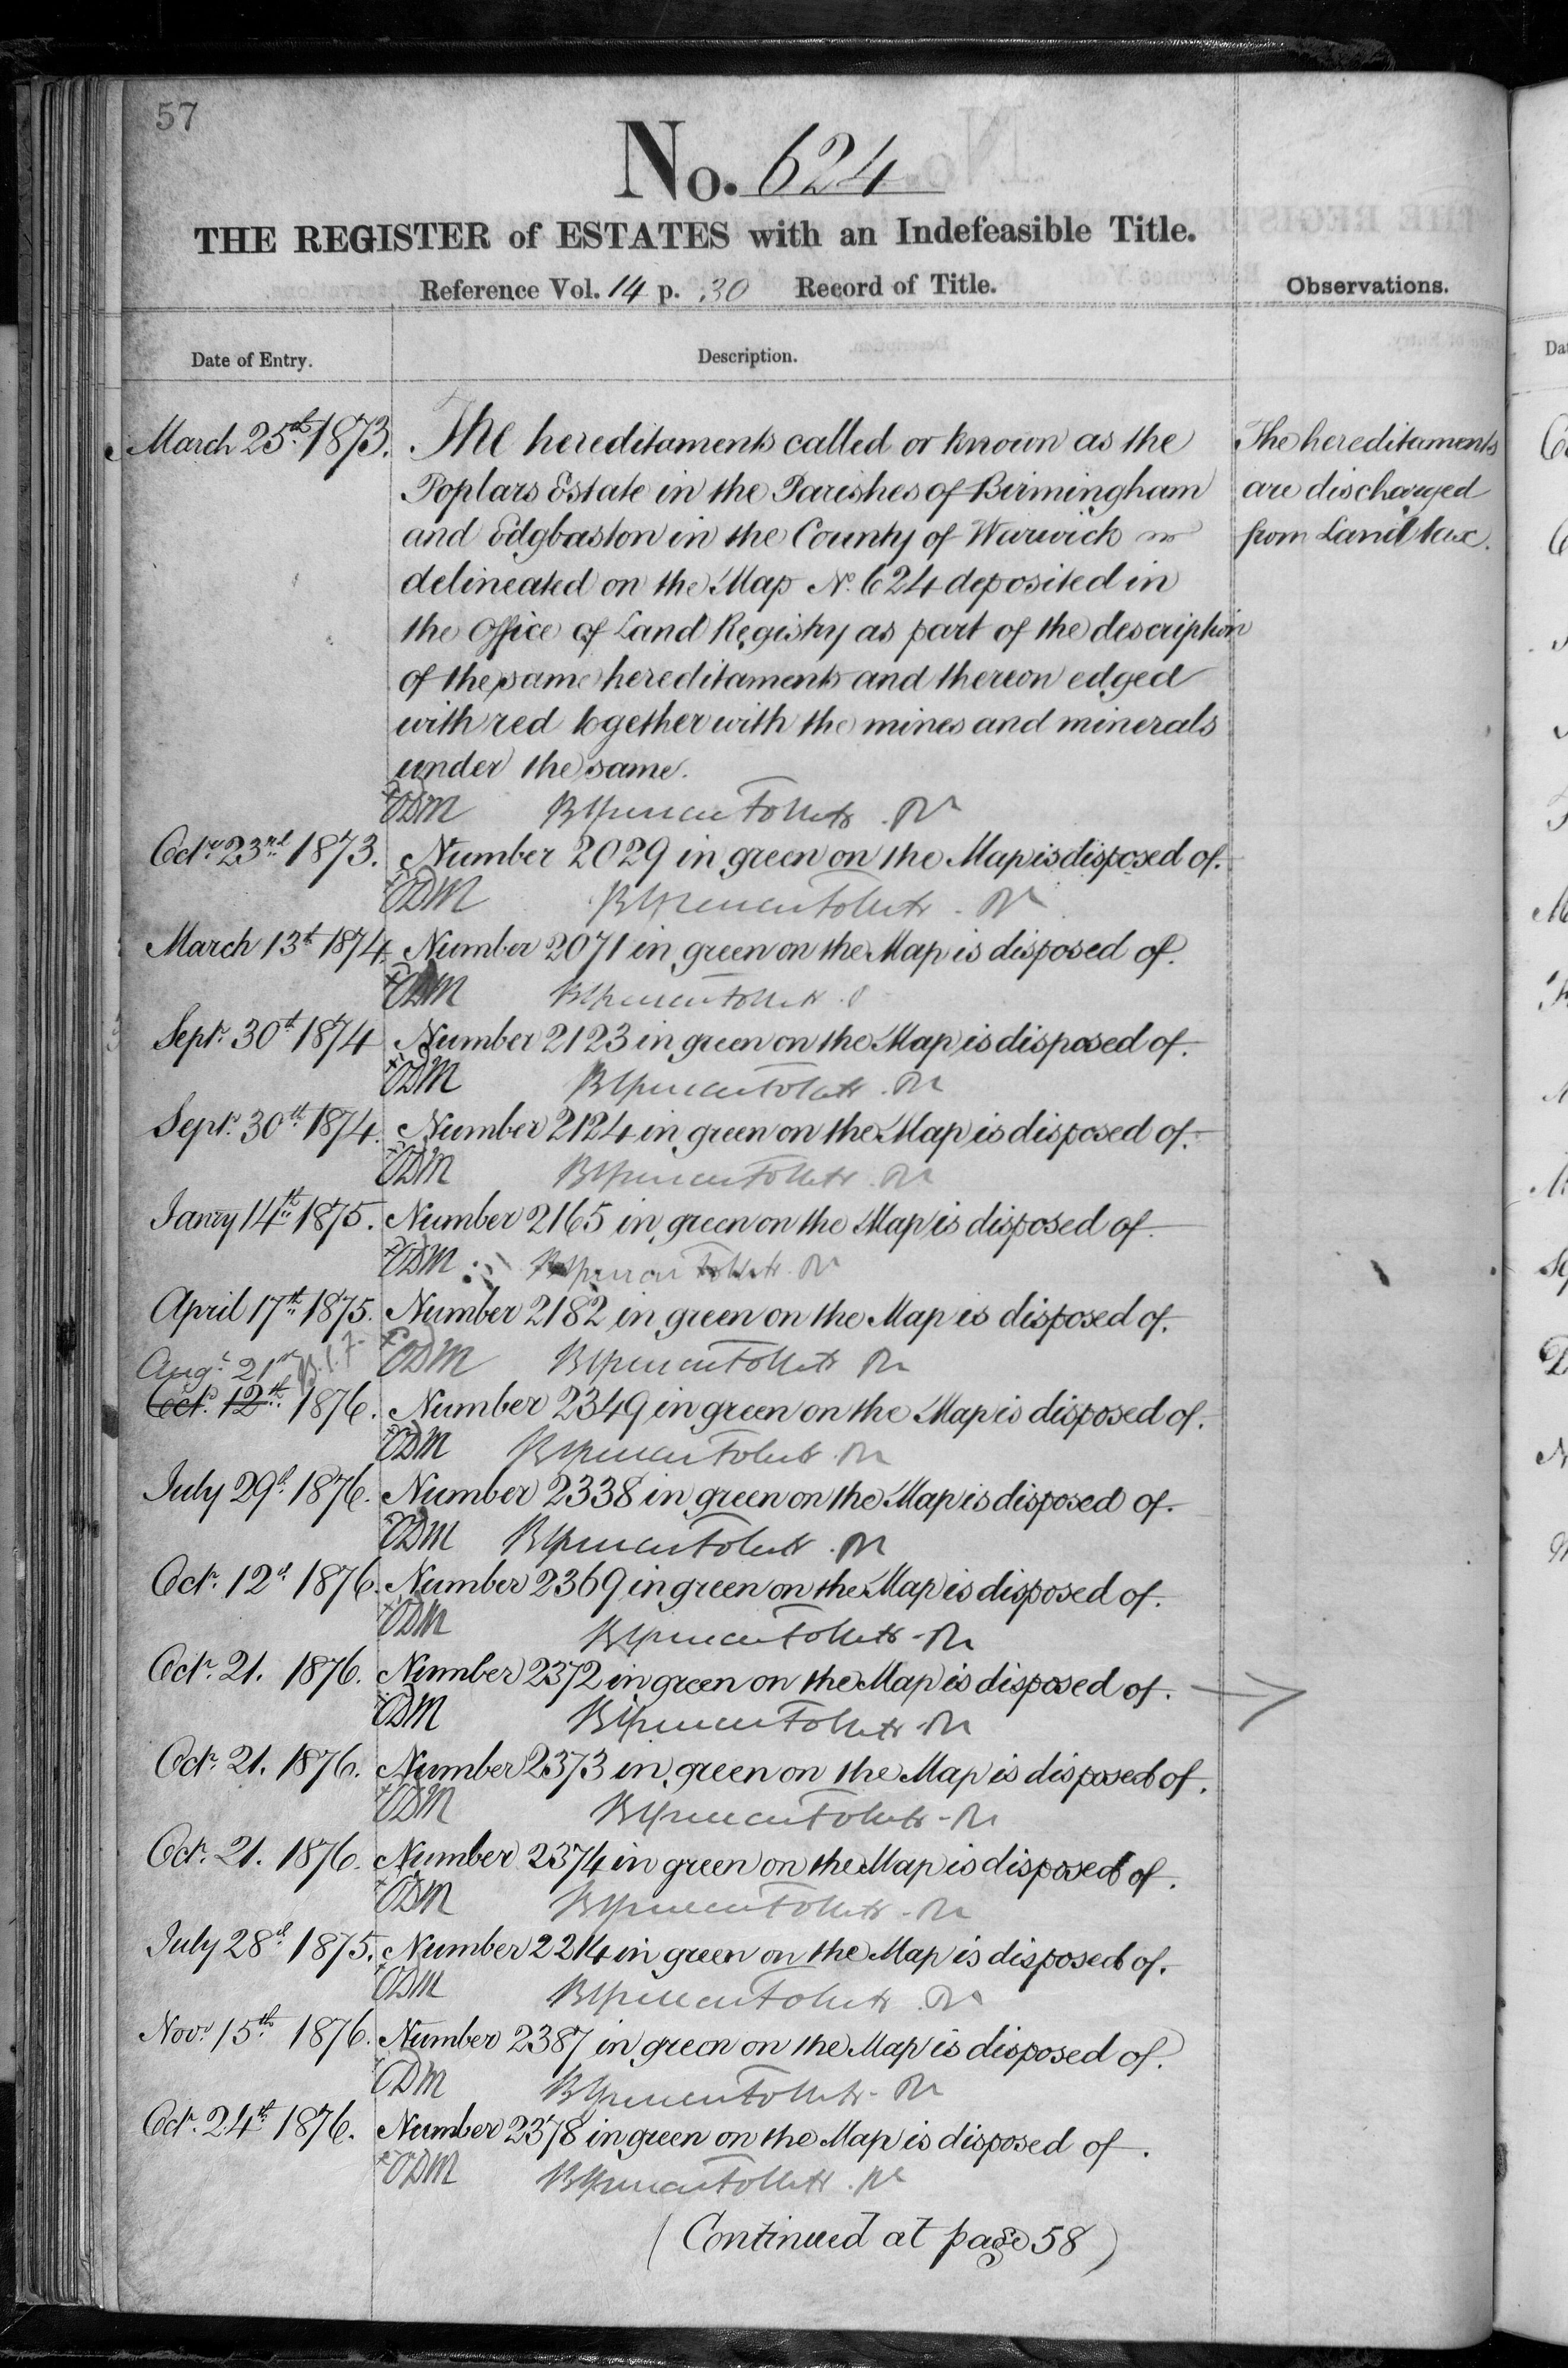 57
No. 624
THE REGISTER of ESTATES with an Indefeasible Title.
Reference Vol. 14 p. 30 Record of Title.
Observations.
Date of Entry.
Description.
March 25th 1873. The hereditaments called or known as the
Poplars Estate in the Parishes of Birmingham
and Edgbaston in the County of Warwick
delineated on the Map No. 624 deposited in
the Office of Land Registry as part of the description
of the same hereditaments and thereon edged
with red together with the mines and minerals
under the same.
The hereditaments
are discharged
from Land tax.
Octr. 23rd 1873. Number 2029 in green on the Map is disposed of.
March 13th 1874. Number 2071 in green on the Map is disposed of.
Septr. 30th 1874 Number 2123 in green on the Map is disposed of.
Septr. 30th 1874. Number 2124 in green on the Map is disposed of.
Janry 14th 1875. Number 2165 in green on the Map is disposed of.
April 17th 1875. Number 2182 in green on the Map is disposed of.
Augt. 21st
Octr. 12th 1876. Number 2349 in green on the Map is disposed of.
July 29th 1876. Number 2338 in green on the Map is disposed of.
Octr. 12th 1876. Number 2369 in green on the Map is disposed of.
Octr. 21. 1876. Number 2372 in green on the Map is disposed of.
Octr. 21. 1876. Number 2373 in green on the Map is disposed of.
Octr. 21. 1876. Number 2374 in green on the Map is disposed of.
July 28th 1875. Number 2214 in green on the Map is disposed of.
Novr. 15th 1876. Number 2387 in green on the Map is disposed of.
Octr. 24th 1876. Number 2378 in green on the Map is disposed of.
(Continued at page 58)